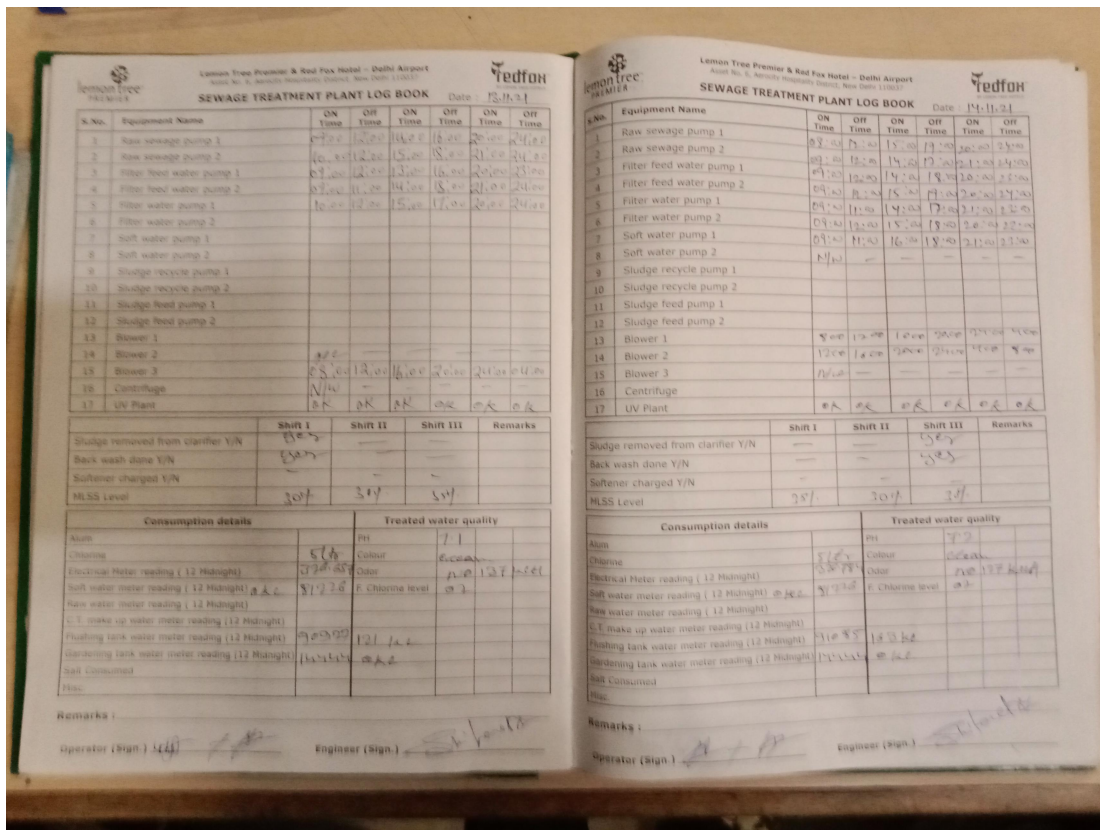 lemon tree
PREMIER
Lemon Tree Premier & Red Fox Hotel - Delhi Airport
Asset No. 6, Aerocity Hospitality District, New Delhi 110037
redfox
SEWAGE TREATMENT PLANT LOG BOOK Date : 13.11.21
S.No. Equipment Name ON Time Off Time ON Time Off Time ON Time Off Time
1 Raw sewage pump 1 09:00 12:00 16:00 20:00 24:00
2 Raw sewage pump 2 10:00 12:00 15:00 18:00 21:00 24:00
3 Filter feed water pump 1 09:00 12:00 13:00 16:00 20:00 23:00
4 Filter feed water pump 2 09:00 11:00 14:00 18:00 21:00 24:00
5 Filter water pump 1 10:00 12:00 15:00 17:00 20:00 24:00
6 Filter water pump 2
7 Soft water pump 1
8 Soft water pump 2
9 Sludge recycle pump 1
10 Sludge recycle pump 2
11 Sludge feed pump 1
12 Sludge feed pump 2
13 Blower 1
14 Blower 2 — — — — —
15 Blower 3 08:00 12:00 16:00 20:00 24:00 04:00
16 Centrifuge N/W — — — — —
17 UV Plant OK OK OK OK OK OK
Shift I Shift II Shift III Remarks
Sludge removed from clarifier Y/N Yes — —
Back wash done Y/N Yes — —
Softener charged Y/N — —
MLSS Level 30%
Consumption details Treated water quality
Alum PH 7.1
Chlorine Colour
Electrical Meter reading ( 12 Midnight) Odor no 137
Soft water meter reading ( 12 Midnight) 87228 F. Chlorine level
Raw water meter reading ( 12 Midnight)
C.T. make up water meter reading (12 Midnight)
Flushing tank water meter reading (12 Midnight) 121
Gardening tank water meter reading (12 Midnight)
Salt Consumed
Misc.
Remarks :
Operator (Sign.) Engineer (Sign.)
lemon tree
PREMIER
Lemon Tree Premier & Red Fox Hotel - Delhi Airport
Asset No. 6, Aerocity Hospitality District, New Delhi 110037
redfox
SEWAGE TREATMENT PLANT LOG BOOK Date : 14.11.21
S.No. Equipment Name ON Time Off Time ON Time Off Time ON Time Off Time
1 Raw sewage pump 1 08:00 15:00 19:00 20:00
2 Raw sewage pump 2 09:00 12:00 14:00 17:00 21:00 24:00
3 Filter feed water pump 1 09:00 12:00 14:00 18:00 20:00
4 Filter feed water pump 2 09:00 15:00 19:00 20:00
5 Filter water pump 1 09:00 11:00 14:00 17:00 21:00
6 Filter water pump 2 09:00 12:00 15:00 18:00 20:00
7 Soft water pump 1 09:00 11:00 16:00 18:00 21:00 23:00
8 Soft water pump 2 N/W — — — — —
9 Sludge recycle pump 1
10 Sludge recycle pump 2
11 Sludge feed pump 1
12 Sludge feed pump 2
13 Blower 1 800 1200 1600 2000 2400 400
14 Blower 2 1200 1600 2000 2400 400 800
15 Blower 3 N/W — — — — —
16 Centrifuge
17 UV Plant OK OK OK OK OK OK
Shift I Shift II Shift III Remarks
Sludge removed from clarifier Y/N — — Yes
Back wash done Y/N — — Yes
Softener charged Y/N — — —
MLSS Level 30%
Consumption details Treated water quality
Alum PH
Chlorine Colour Clean
Electrical Meter reading ( 12 Midnight) Odor no
Soft water meter reading ( 12 Midnight) 87228 F. Chlorine level
Raw water meter reading ( 12 Midnight)
C.T. make up water meter reading (12 Midnight)
Flushing tank water meter reading (12 Midnight) 91085
Gardening tank water meter reading (12 Midnight)
Salt Consumed
Misc.
Remarks :
Operator (Sign.) Engineer (Sign.)